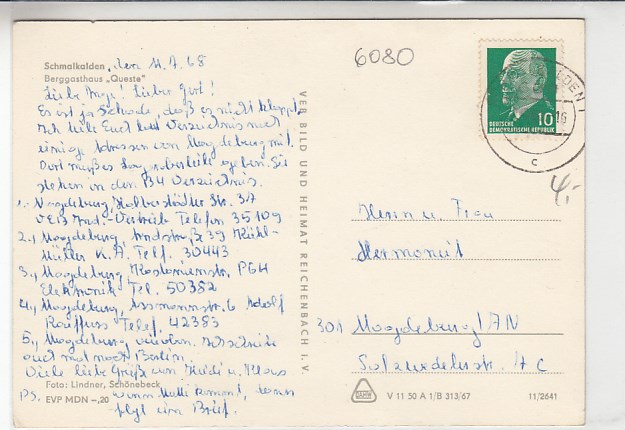 Schmalkalden, den 11.7.68
Berggasthaus „Queste"
6080
Liebe Inge! Lieber Gert!
Es ist ja Schade, daß es nicht klappt.
Ich teile Euch laut Verzeichnis noch
einige Adressen von Magdeburg mit.
Dort muß es Ersatzteile geben. Sie
stehen in den B4 Verzeichnis.
1., Magdeburg, Halberstädter Str. 37
VEB Ind.-Vertrieb Telefon 35109
2., Magdeburg, Arndtstraße 39 Kühl-
Müller K.A. Telf. 30443
3., Magdeburg PGH
Elektronik Tel. 50382
4., Magdeburg, Assmannstr. 6 Adolf
Telef. 42383
5., Magdeburg,
auch mal nach Berlin.
Viele liebe Grüße von Heidi u. Klaus
Foto: Lindner, Schönebeck
PS. Wenn Mutti kommt, dann
EVP MDN –,20
folgt ein Brief.
VEB BILD UND HEIMAT REICHENBACH I. V.
DEUTSCHE
DEMOKRATISCHE REPUBLIK
10
c
4,-
Herrn u. Frau
301 Magdeburg/AN
Salzwedelerstr. 7c
V 11 50 A 1/B 313/67
11/2641